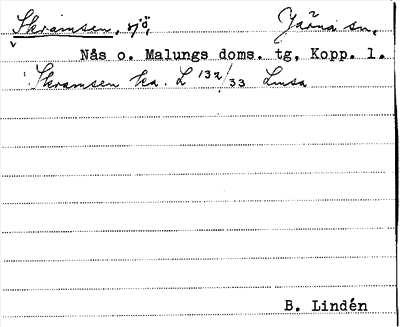 Skramsen, sjö, Järna sn,
Nås o. Malungs doms. tg, Kopp. l.
Skramsen ka. L 132/33 Limsa
B. Lindén